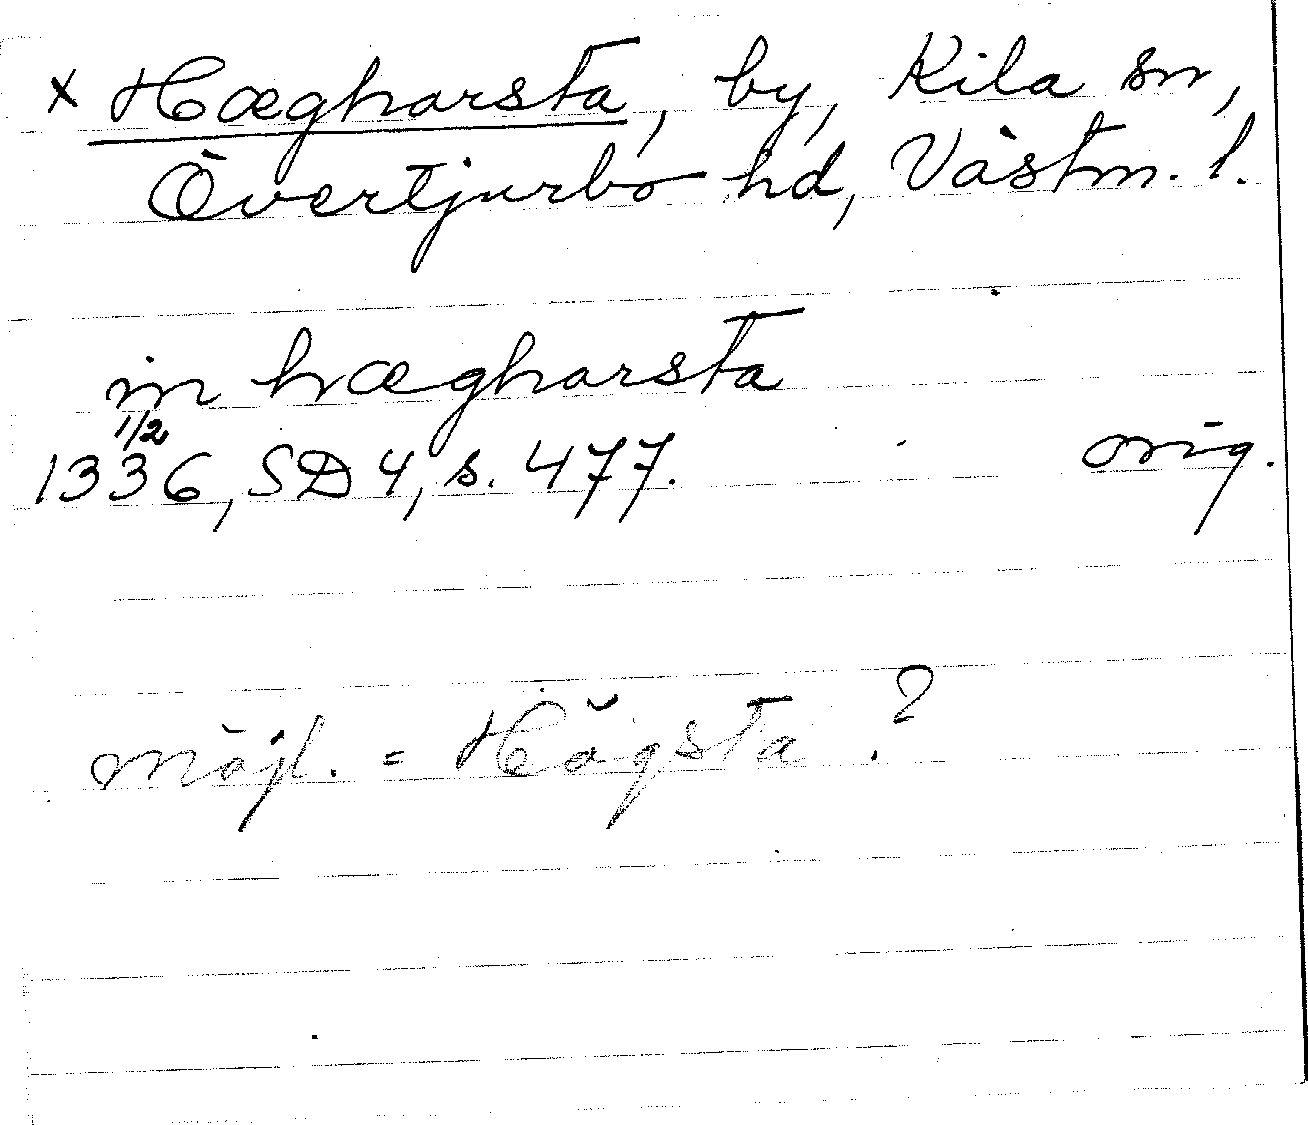 x Hægharsta, by, Kila sn,
Övertjurbo hd, Västm. l.
in hægharsta
1/2
1336, SD 4, s. 477. orig.
möjl. = Högsta.?